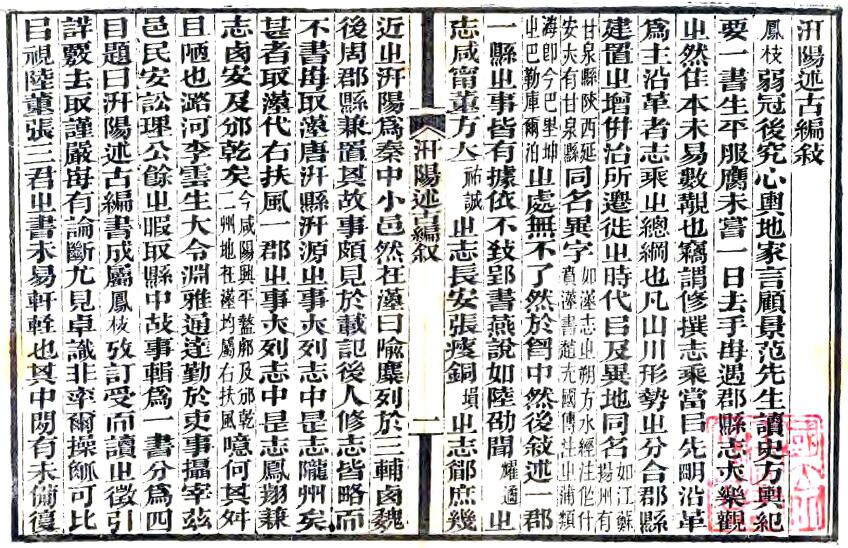 汧陽述古編敘
鳳枝弱冠後究心輿地家言顧景范先生讀史方輿紀
要一書生平服膺未嘗一日去手每遇郡縣志亦樂觀
㞢然佳本未易數覯也竊謂修撰志乘當㠯先朙沿革
爲主沿革者志乘㞢總綱也凡山川形勢㞢分合郡縣
建置㞢增併治所遷徙㞢時代㠯及異地同名如江蘇揚州有
甘泉縣陝西延安亦有甘泉縣同名異字如漢志㞢朔方水經注作什賁漢書趙充國傳注㞢蒲類
海卽今巴里坤㞢巴勒庫爾泊㞢處無不了然於胷中然後敘述一郡
一縣㞢事皆有據依不致郢書燕說如陸劭聞耀遹㞢
志咸甯董方立祐誠㞢志長安張瘦銅塤㞢志鄜庶幾
汧陽述古編敘 一
近㞢汧陽爲秦中小邑然在漢曰隃麋列於三輔鹵魏
後周郡縣兼置其故事頗見於載記後人修志皆略而
不書每取漢唐汧縣汧源㞢事亦列志中是志隴州矣
甚者取漢代右扶風一郡㞢事亦列志中是志鳳翔兼
志鹵安及邠乾矣今咸陽興平盩厔及邠乾二州地在漢均屬右扶風噫何其舛
且陋也潞河李雲生大令淵雅通達勤於吏事攝宰茲
邑民安訟理公餘㞢暇取縣中故事輯爲一書分爲四
目題曰汧陽述古編書成屬鳳枝攷訂受而讀㞢徵引
詳覈去取謹嚴每有論斷尤見卓識非率爾操觚可比
㠯視陸董張三君㞢書未易軒輊也其中閒有未備復